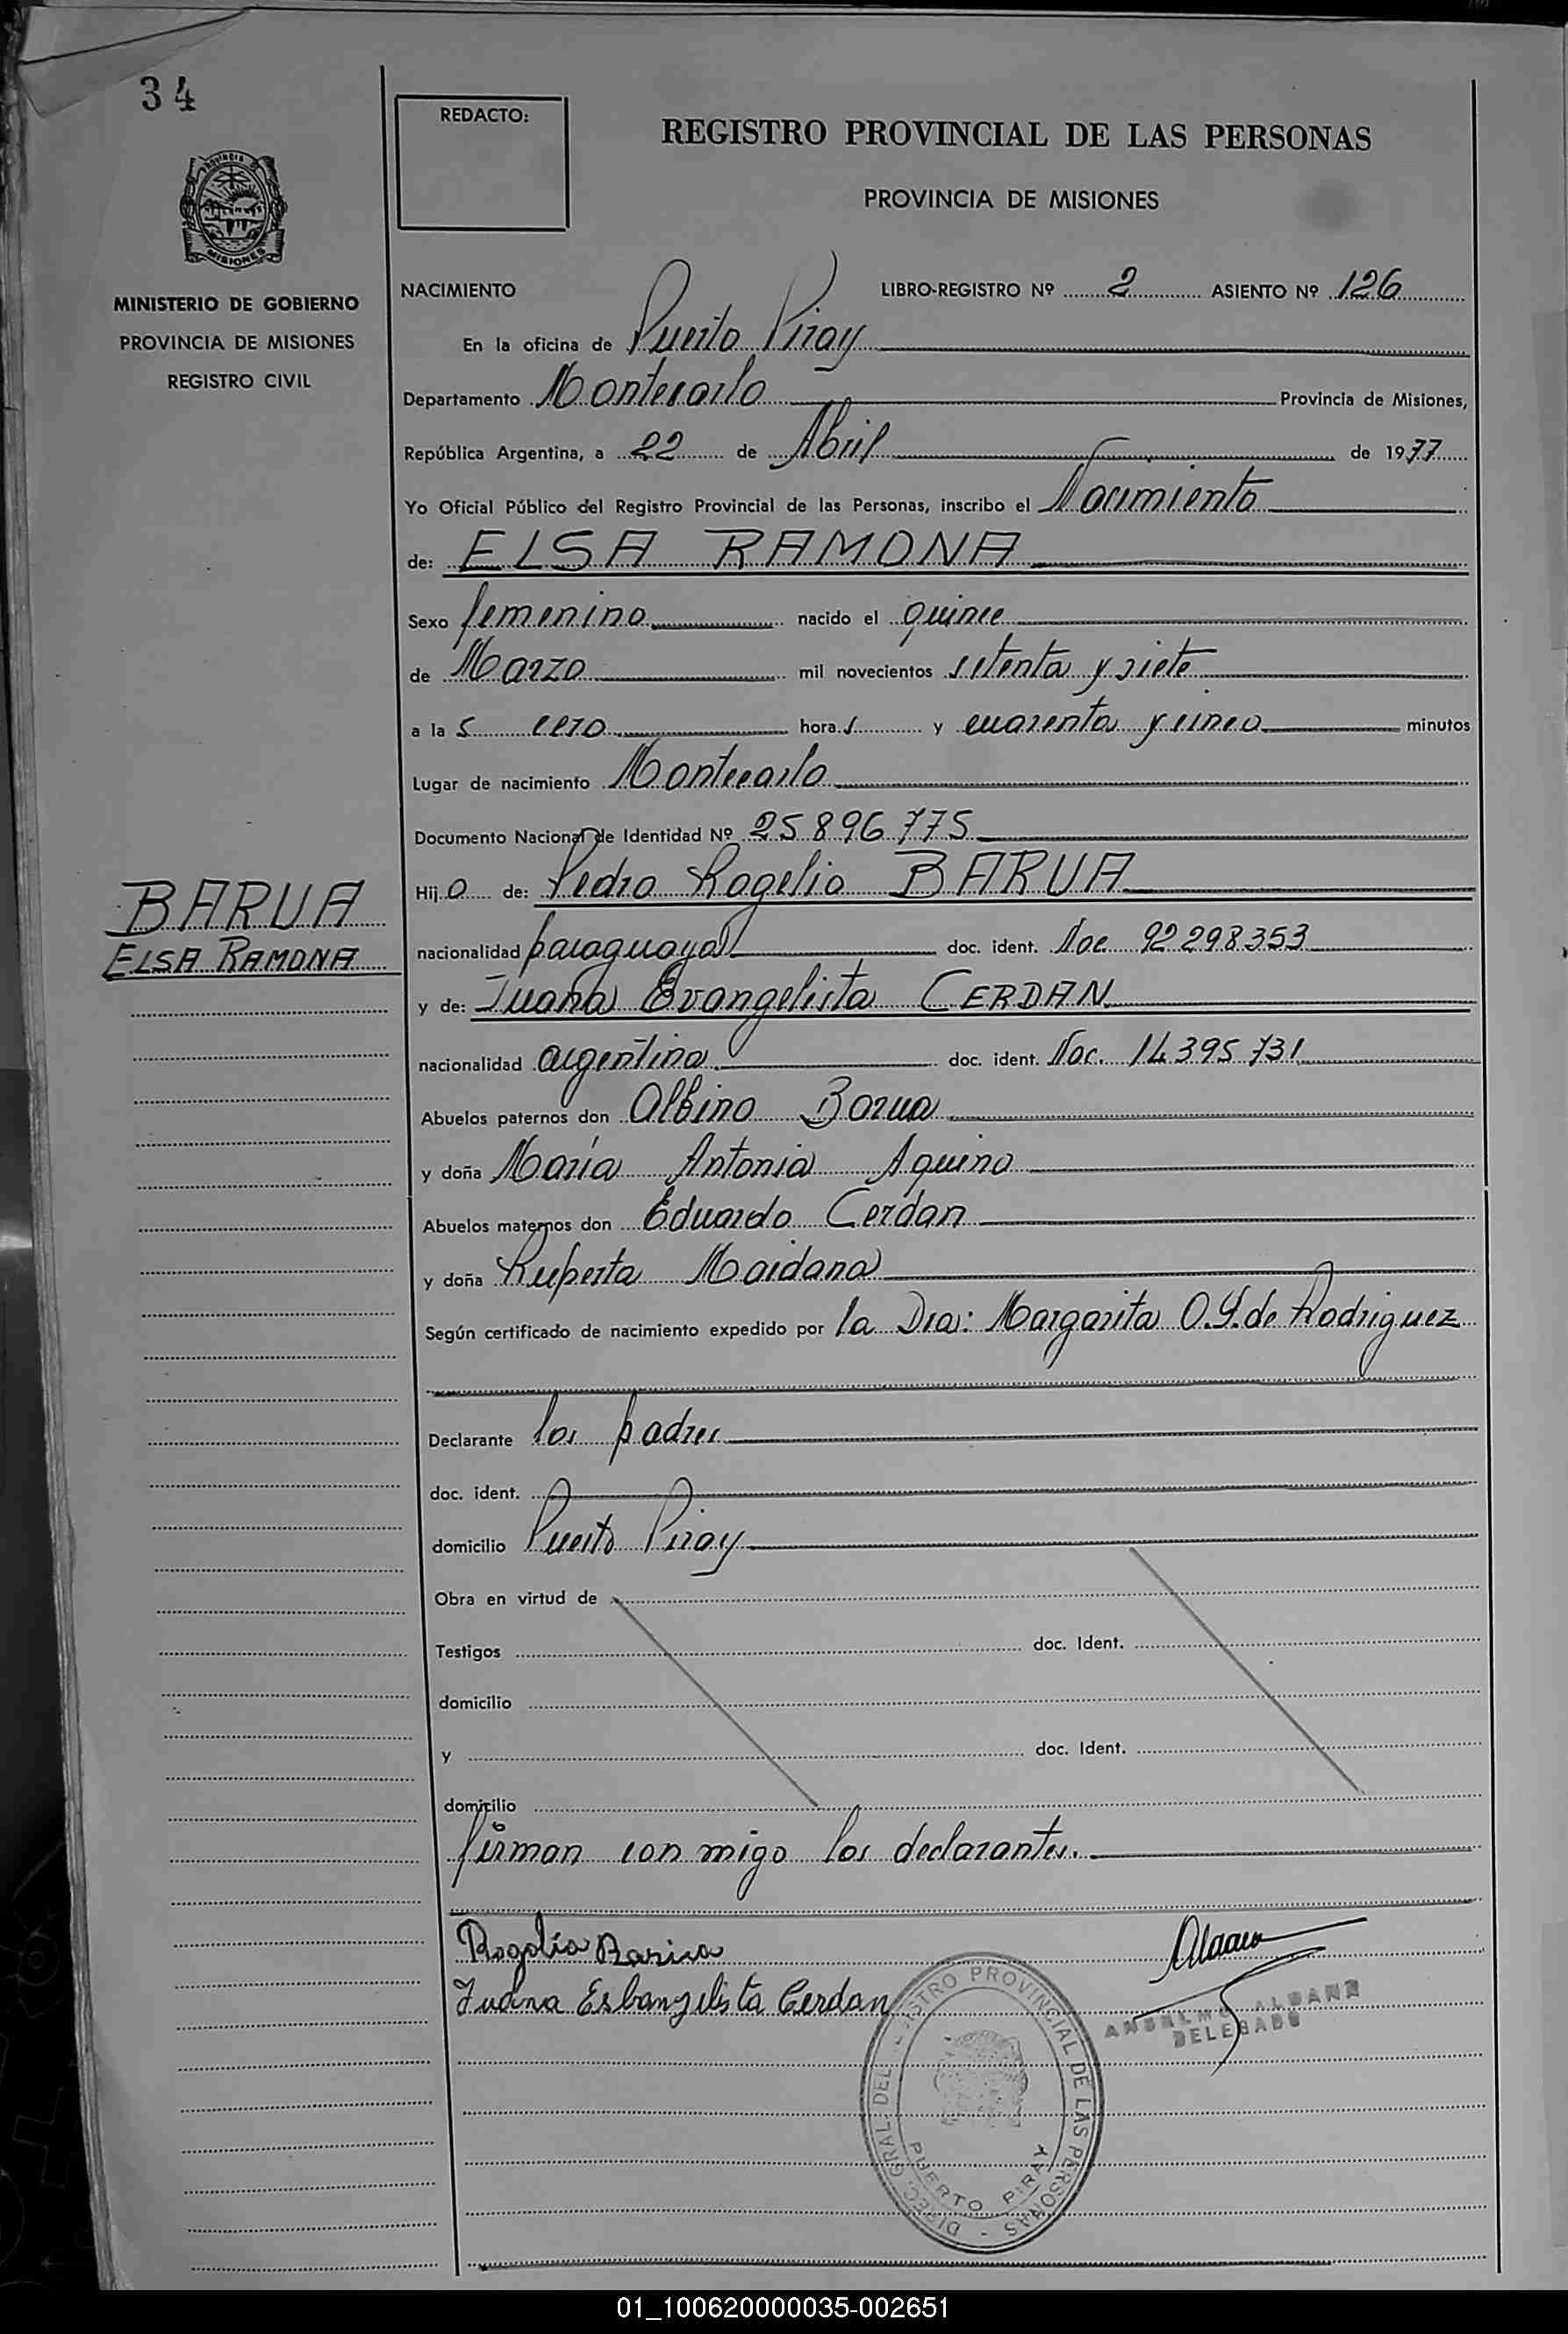 34
REDACTO:
REGISTRO PROVINCIAL DE LAS PERSONAS
PROVINCIA DE MISIONES
MISIONES
MINISTERIO DE GOBIERNO
PROVINCIA DE MISIONES
REGISTRO CIVIL
NACIMIENTO LIBRO-REGISTRO Nº 2 ASIENTO Nº 126
En la oficina de Puerto Piray
Departamento Montecarlo Provincia de Misiones,
República Argentina, a 22 de Abril de 1977
Yo Oficial Público del Registro Provincial de las Personas, inscribo el Nacimiento
de: ELSA RAMONA
Sexo femenino nacido el quince
de Marzo mil novecientos setenta y siete
a la s cero hora s y cuarenta y cinco minutos
Lugar de nacimiento Montecarlo
Documento Nacional de Identidad Nº 25896775
Hij o de: Pedro Rogelio BARUA
BARUA
ELSA RAMONA
nacionalidad paraguaya doc. ident. Noc 92298353
y de: Juana Evangelista CERDAN
nacionalidad argentina doc. ident. Noc. 14395731
Abuelos paternos don Albino Barua
y doña María Antonia Aquino
Abuelos maternos don Eduardo Cerdan
y doña Ruperta Maidana
Según certificado de nacimiento expedido por la Dra: Margarita O. de Rodriguez
Declarante los padres
doc. ident.
domicilio Puerto Piray
Obra en virtud de
Testigos doc. Ident.
domicilio
y doc. Ident.
domicilio
firman con migo los declarantes.
Juana Esbangelista Cerdan
ANSELMO
DELEGADO
DIREC. GRAL. DEL REGISTRO PROVINCIAL DE LAS PERSONAS -
PUERTO PIRAY
01_100620000035-002651